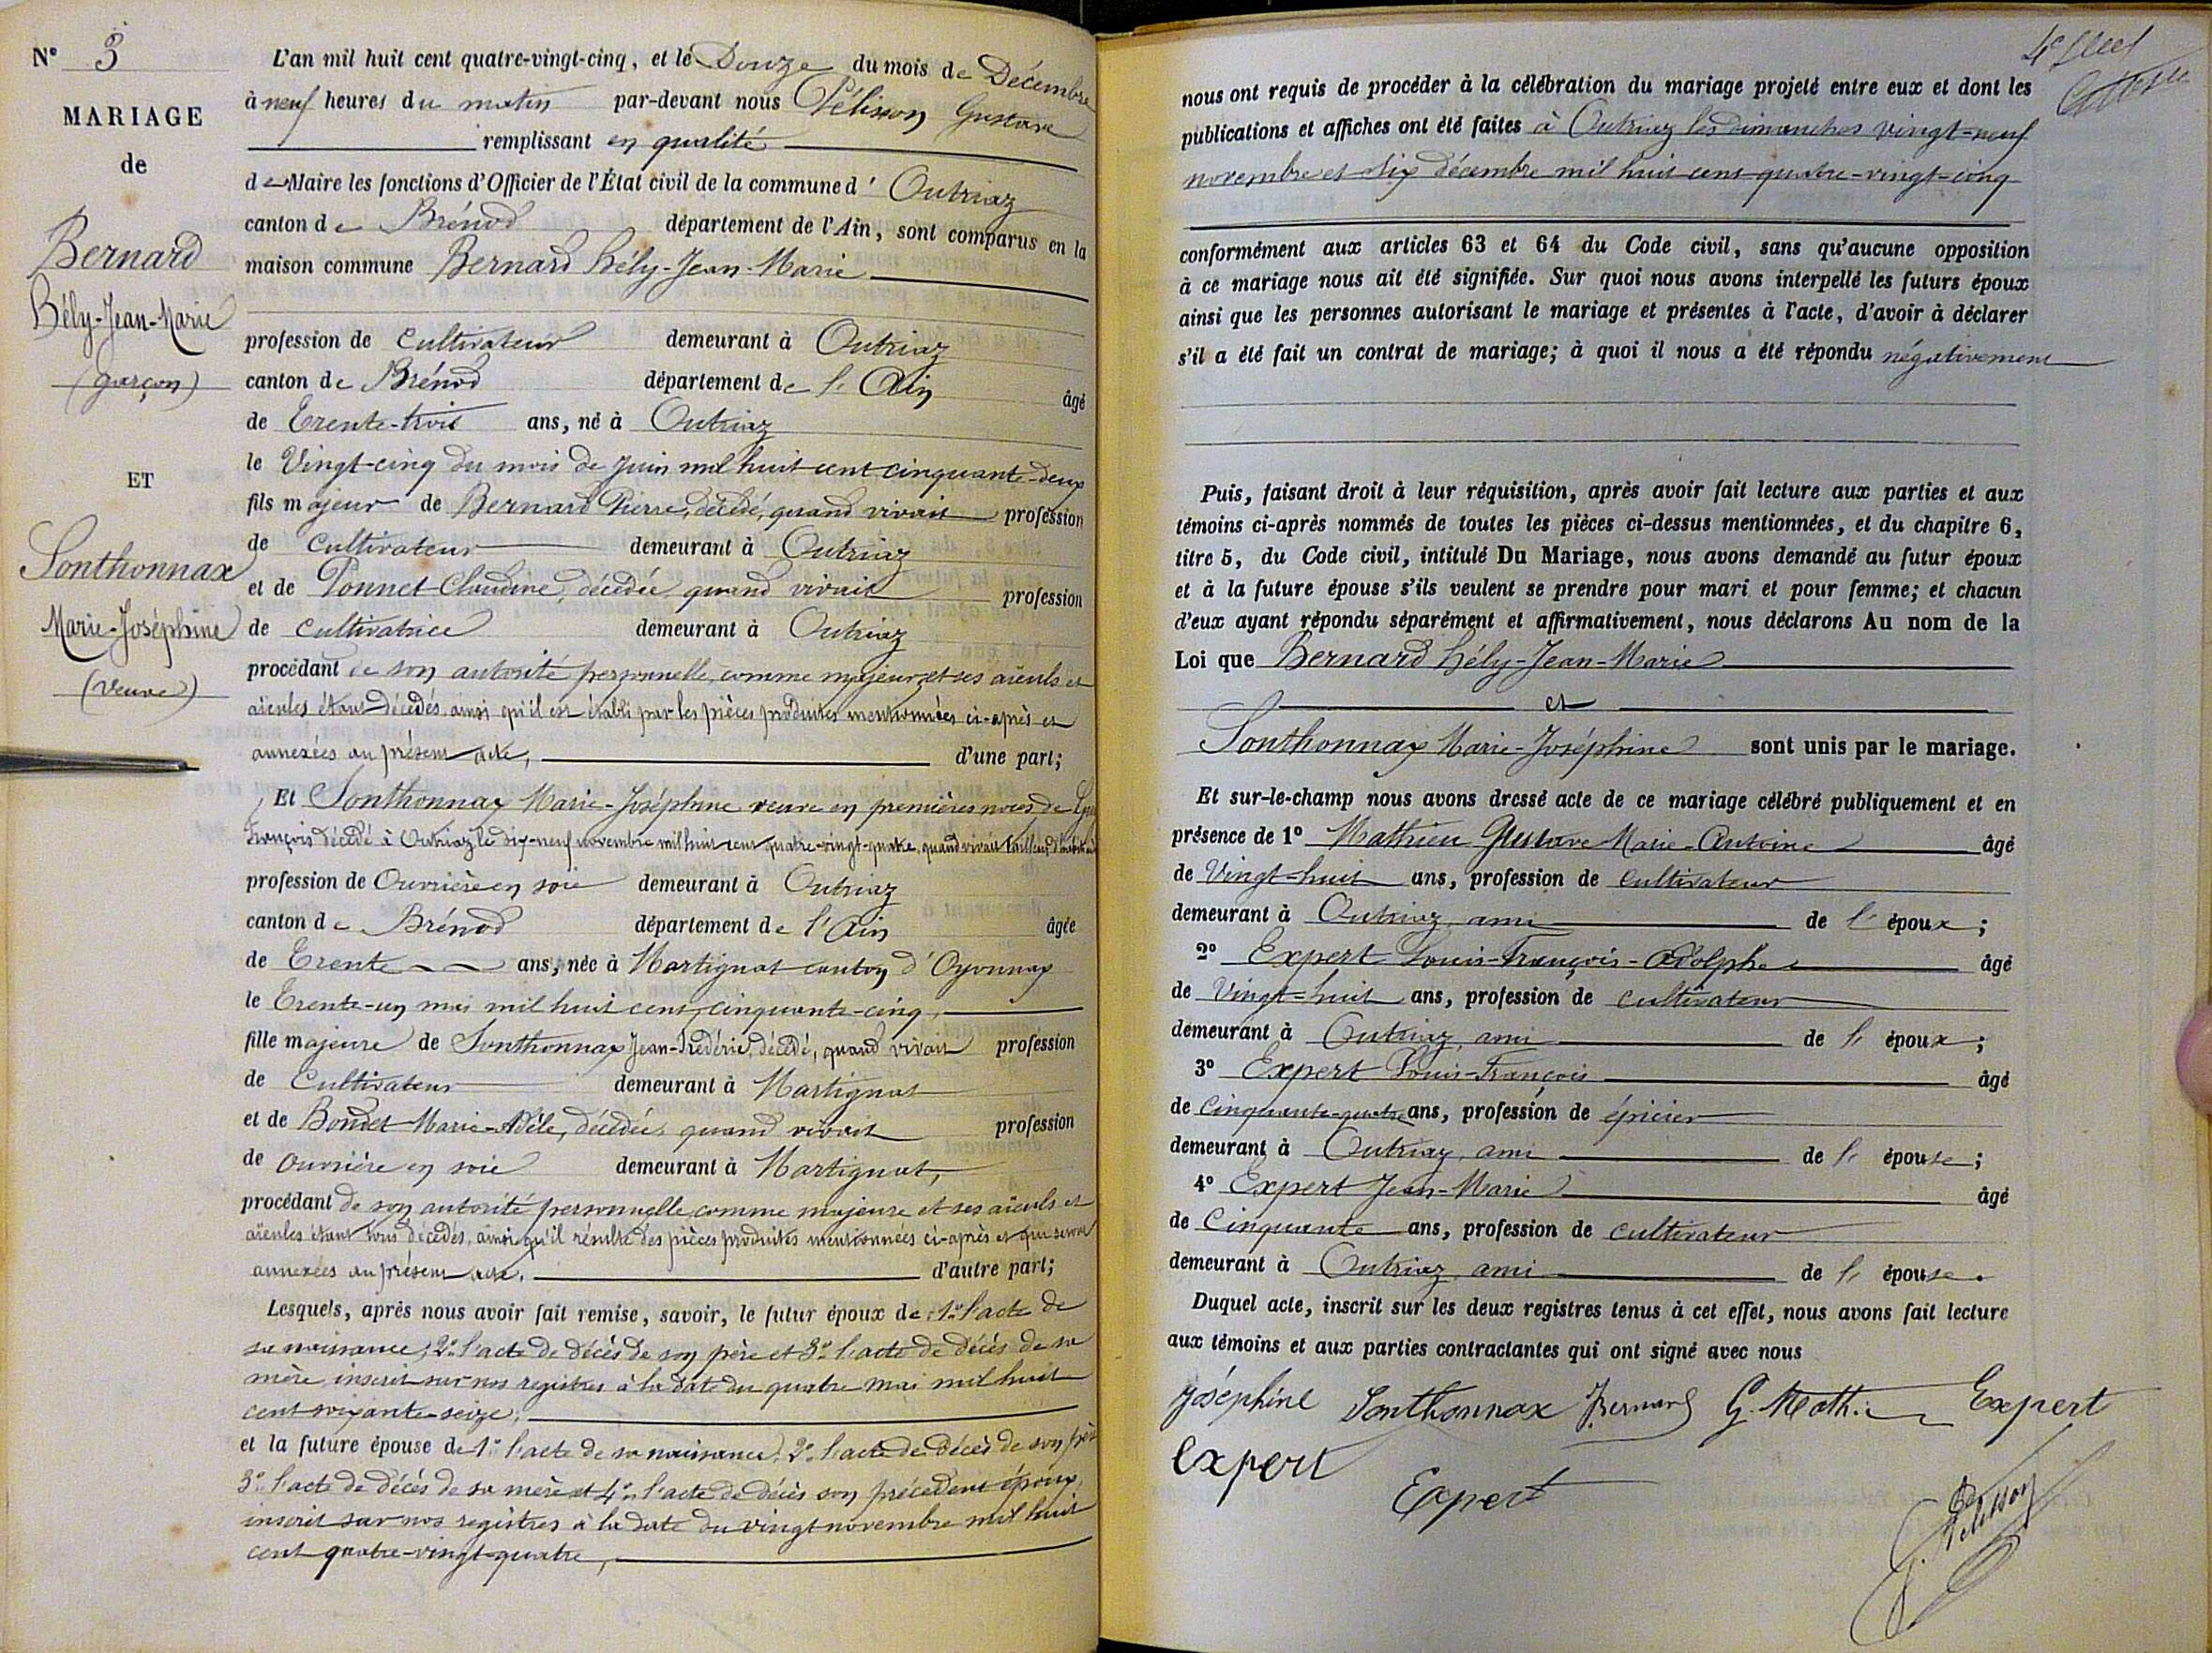 N° 3
MARIAGE
de
Bernard
Hély-Jean-Marie
(garçon)
ET
Sonthonnax
Marie-Joséphine
(veuve)
L'an mil huit cent quatre-vingt-cinq, et le Douze du mois de Décembre
à neuf heures du matin par-devant nous Pélisson Gustave
remplissant en qualité
de Maire les fonctions d'Officier de l'État civil de la commune d' Outriaz
canton de Brénod département de l'Ain, sont comparus en la
maison commune Bernard Hély-Jean-Marie
profession de cultivateur demeurant à Outriaz
canton de Brénod département de l'Ain âgé
de Trente-trois ans, né à Outriaz
le Vingt-cinq du mois de juin mil huit cent cinquante-deux
fils majeur de Bernard Pierre, décédé, quand vivait profession
de cultivateur demeurant à Outriaz
et de Ponnet Claudine décédée quand vivait profession
de cultivatrice demeurant à Outriaz
procédant de son autorité personnelle, comme majeur, et ses aïeuls et
aïeules étant décédés, ainsi qu'il est établi par les pièces produites mentionnées ci-après et
annexées au présent acte, d'une part;
Et Sonthonnax Marie-Joséphine veuve en premières noces de
François décédé à Outriaz le dix-neuf novembre mil huit cent quatre-vingt-quatre, quand vivait tailleur d'habits
profession de Ouvrière en soie demeurant à Outriaz
canton de Brénod département de l'Ain âgée
de Trente ans, née à Martignat canton d'Oyonnax
le Trente-un mai mil huit cent cinquante-cinq,
fille majeure de Sonthonnax Jean-Frédéric, décédé, quand vivait profession
de Cultivateur demeurant à Martignat
et de Bondet Marie-Adèle, décédée quand vivait profession
de ouvrière en soie demeurant à Martignat,
procédant de son autorité personnelle comme majeure et ses aïeuls et
aïeules étant tous décédés, ainsi qu'il résulte des pièces produites mentionnées ci-après et qui seront
annexées au présent acte. d'autre part;
Lesquels, après nous avoir fait remise, savoir, le futur époux de 1° l'acte de
sa naissance, 2° l'acte de décès de son père et 3° l'acte de décès de sa
mère, inscrit sur nos registres à la date du quatre mai mil huit
cent soixante-seize;
et la future épouse de 1° l'acte de sa naissance, 2° l'acte de décès de son père
3° l'acte de décès de sa mère et 4° l'acte de décès son précédent époux,
inscrit sur nos registres à la date du vingt novembre mil huit
cent quatre-vingt-quatre,
nous ont requis de procéder à la célébration du mariage projeté entre eux et dont les
publications et affiches ont été faites à Outriaz les dimanches vingt-neuf
novembre et six décembre mil huit cent quatre-vingt-cinq
conformément aux articles 63 et 64 du Code civil, sans qu'aucune opposition
à ce mariage nous ait été signifiée. Sur quoi nous avons interpellé les futurs époux
ainsi que les personnes autorisant le mariage et présentes à l'acte, d'avoir à déclarer
s'il a été fait un contrat de mariage; à quoi il nous a été répondu négativement
Puis, faisant droit à leur réquisition, après avoir fait lecture aux parties et aux
témoins ci-après nommés de toutes les pièces ci-dessus mentionnées, et du chapitre 6,
titre 5, du Code civil, intitulé Du Mariage, nous avons demandé au futur époux
et à la future épouse s'ils veulent se prendre pour mari et pour femme; et chacun
d'eux ayant répondu séparément et affirmativement, nous déclarons Au nom de la
Loi que Bernard Hély-Jean-Marie
et
Sonthonnax Marie-Joséphine sont unis par le mariage.
Et sur-le-champ nous avons dressé acte de ce mariage célébré publiquement et en
présence de 1° Mathieu Gustave Marie-Antoine âgé
de Vingt-huit ans, profession de cultivateur
demeurant à Outriaz, ami de l'époux;
2° Expert Louis-François-Adolphe âgé
de Vingt-huit ans, profession de cultivateur
demeurant à Outriaz, ami de l'époux;
3° Expert Louis-François âgé
de Cinquante-quatre ans, profession de épicier
demeurant à Outriaz, ami de l'épouse;
4° Expert Jean-Marie âgé
de Cinquante ans, profession de cultivateur
demeurant à Outriaz, ami de l'épouse.
Duquel acte, inscrit sur les deux registres tenus à cet effet, nous avons fait lecture
aux témoins et aux parties contractantes qui ont signé avec nous
Joséphine Sonthonnax J. Bernard G. Mathieu Expert
Expert
Expert
G. Pélisson